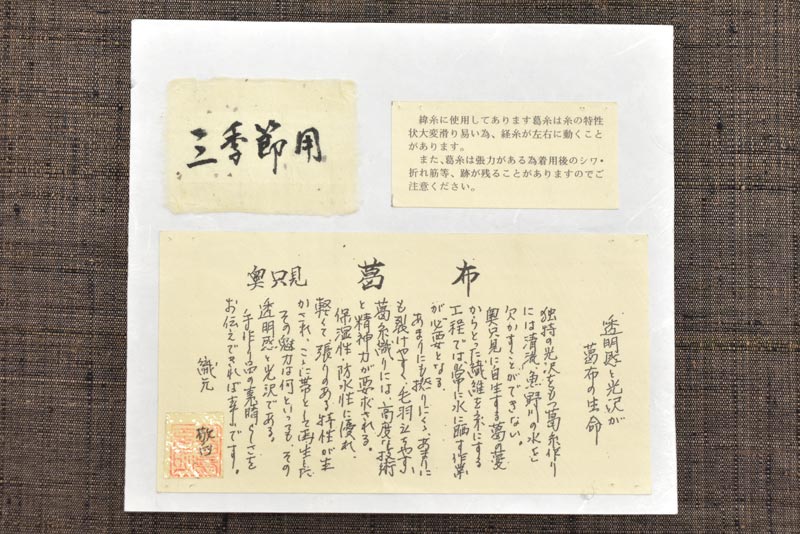 三季節用
緯糸に使用してあります葛糸は糸の特性
状大変滑り易い為、経糸が左右に動くこと
があります。
また、葛糸は張力がある為着用後のシワ・
折れ筋等、跡が残ることがありますのでご
注意ください。
奥只見 葛布
透明感と光沢が
葛布の生命
独特の光沢をもつ葛糸作り
には清流、魚野川の水を
欠かすことができない。
奥只見に自生する葛の蔓
からとった繊維を糸にする
工程では常に水に晒す作業
が必要となる。
あまりにも撚りにくく、あまりに
も裂けやすく、毛羽立ちやすい
葛糸織りには、高度な技術
と精神力が要求される。
保湿性・防水性に優れ、
軽くて張りのある特性が生
かされ、ここに帯として再生
その魅力は何といっても、その
透明感と光沢である。
手作り品の素晴らしさを
お伝えできれば幸いです。
織元